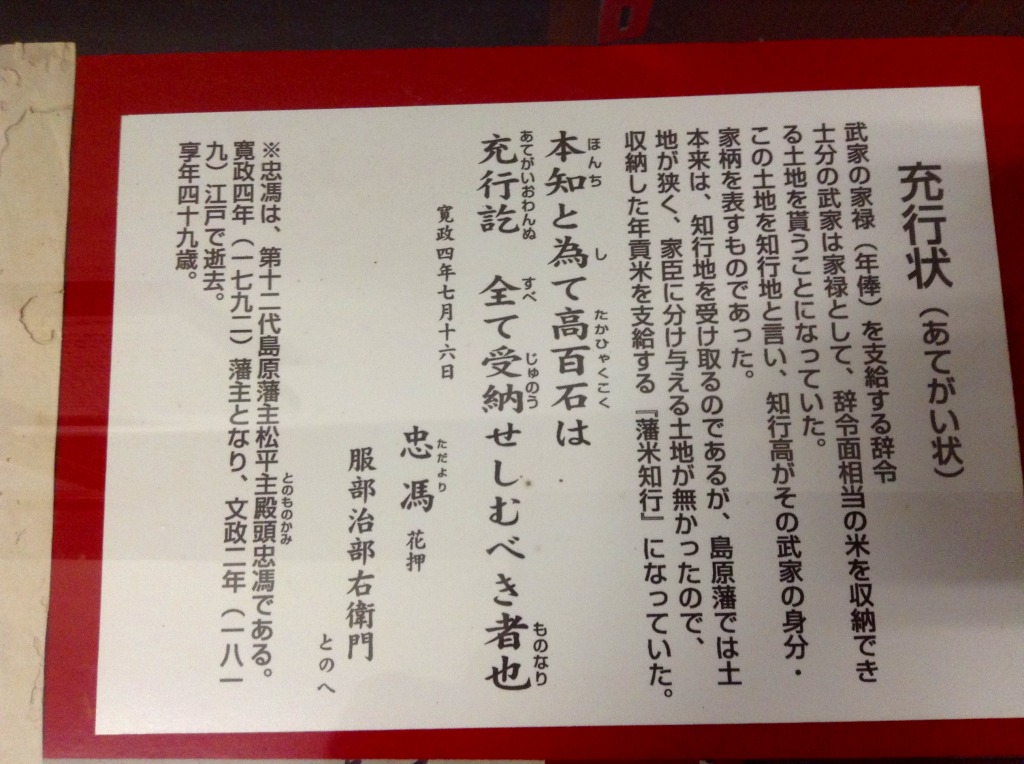 充行状（あてがい状）
武家の家禄（年俸）を支給する辞令
士分の武家は家禄として、辞令面相当の米を収納でき
る土地を貰うことになっていた。
この土地を知行地と言い、知行高がその武家の身分・
家柄を表すものであった。
本来は、知行地を受け取るのであるが、島原藩では土
地が狭く、家臣に分け与える土地が無かったので、
収納した年貢米を支給する『藩米知行』になっていた。
ほんち し たかひゃくこく
本知と為て高百石は
あてがいおわんぬ すべ じゅのう ものなり
充行訖 全て受納せしむべき者也
寛政四年七月十六日
ただより
忠馮 花押
服部治部右衛門
とのへ
とのものかみ
※忠馮は、第十二代島原藩主松平主殿頭忠馮である。
寛政四年（一七九二）藩主となり、文政二年（一八一
九）江戸で逝去。
享年四十九歳。